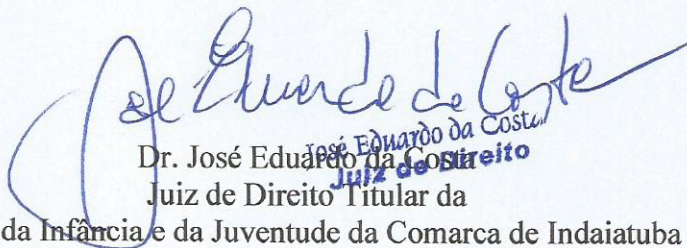 José Eduardo da Costa
José Eduardo da Costa
Juiz de Direito
Dr. José Eduardo da Costa
Juiz de Direito Titular da
da Infância e da Juventude da Comarca de Indaiatuba